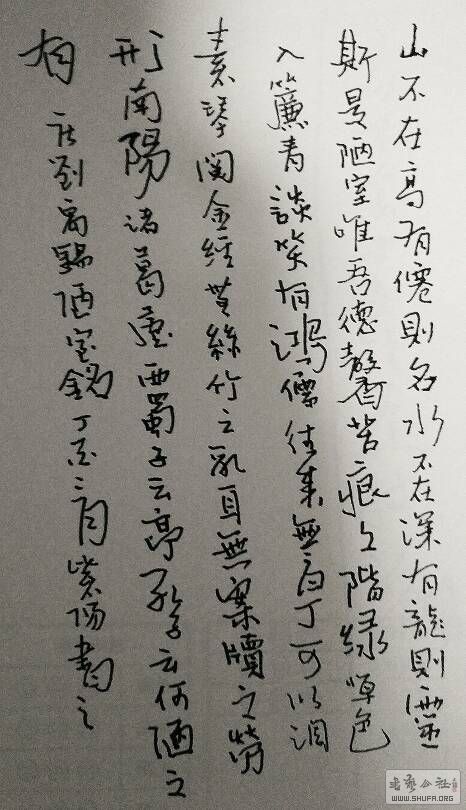 山不在高有僊則名水不在深有龍則靈
斯是陋室唯吾德馨苔痕上階綠草色
入簾青談笑有鴻儒往來無白丁可以調
素琴閱金經無絲竹之亂耳無案牘之勞
形南陽諸葛廬西蜀子云亭孔子云何陋之
有 劉禹錫陋室銘丁二月紫陽書之
書藝公社
WWW.SHUFA.ORG